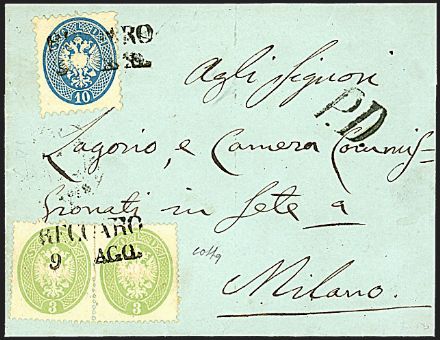 ARO
10
Agli Signori
P.D
Lagorio, e Camera Commis=
sionati in Sete a
RECOARO
9 AGO.
3 3
Milano.